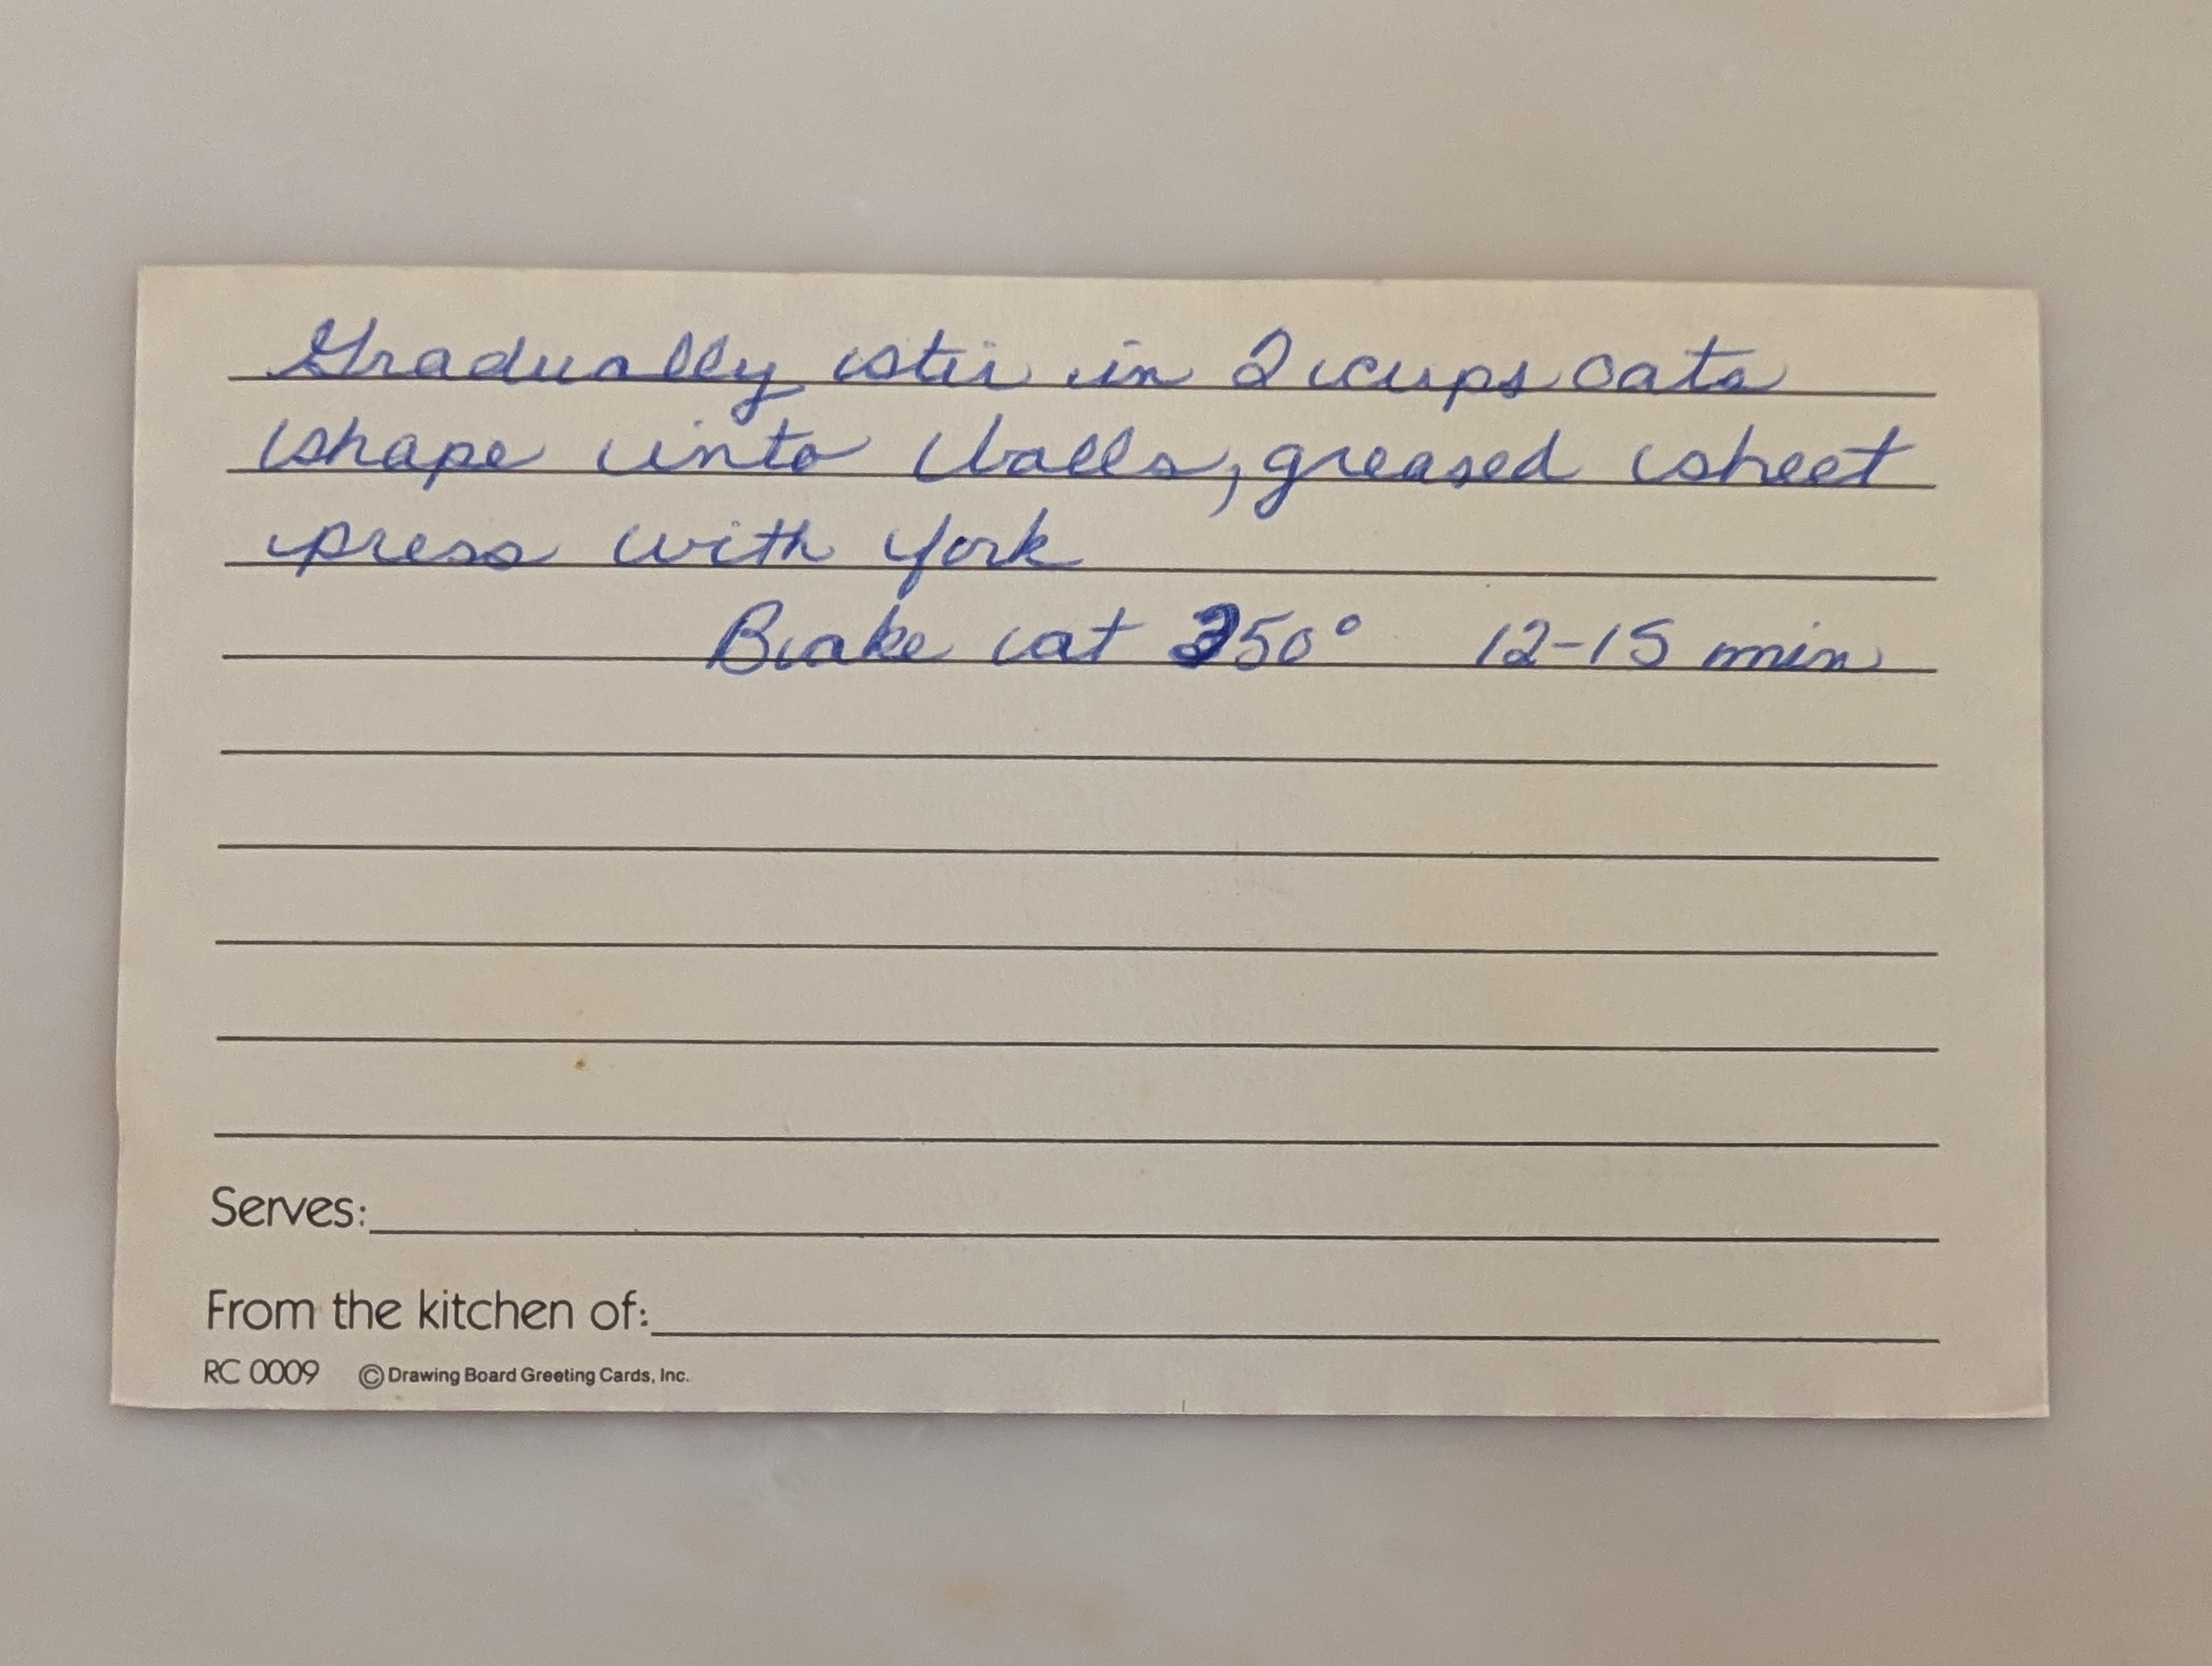 Gradually stir in 2 cups oats
shape into balls, greased sheet
press with fork
Bake at 350° 12-15 min
Serves:
From the kitchen of:
RC 0009 © Drawing Board Greeting Cards, Inc.